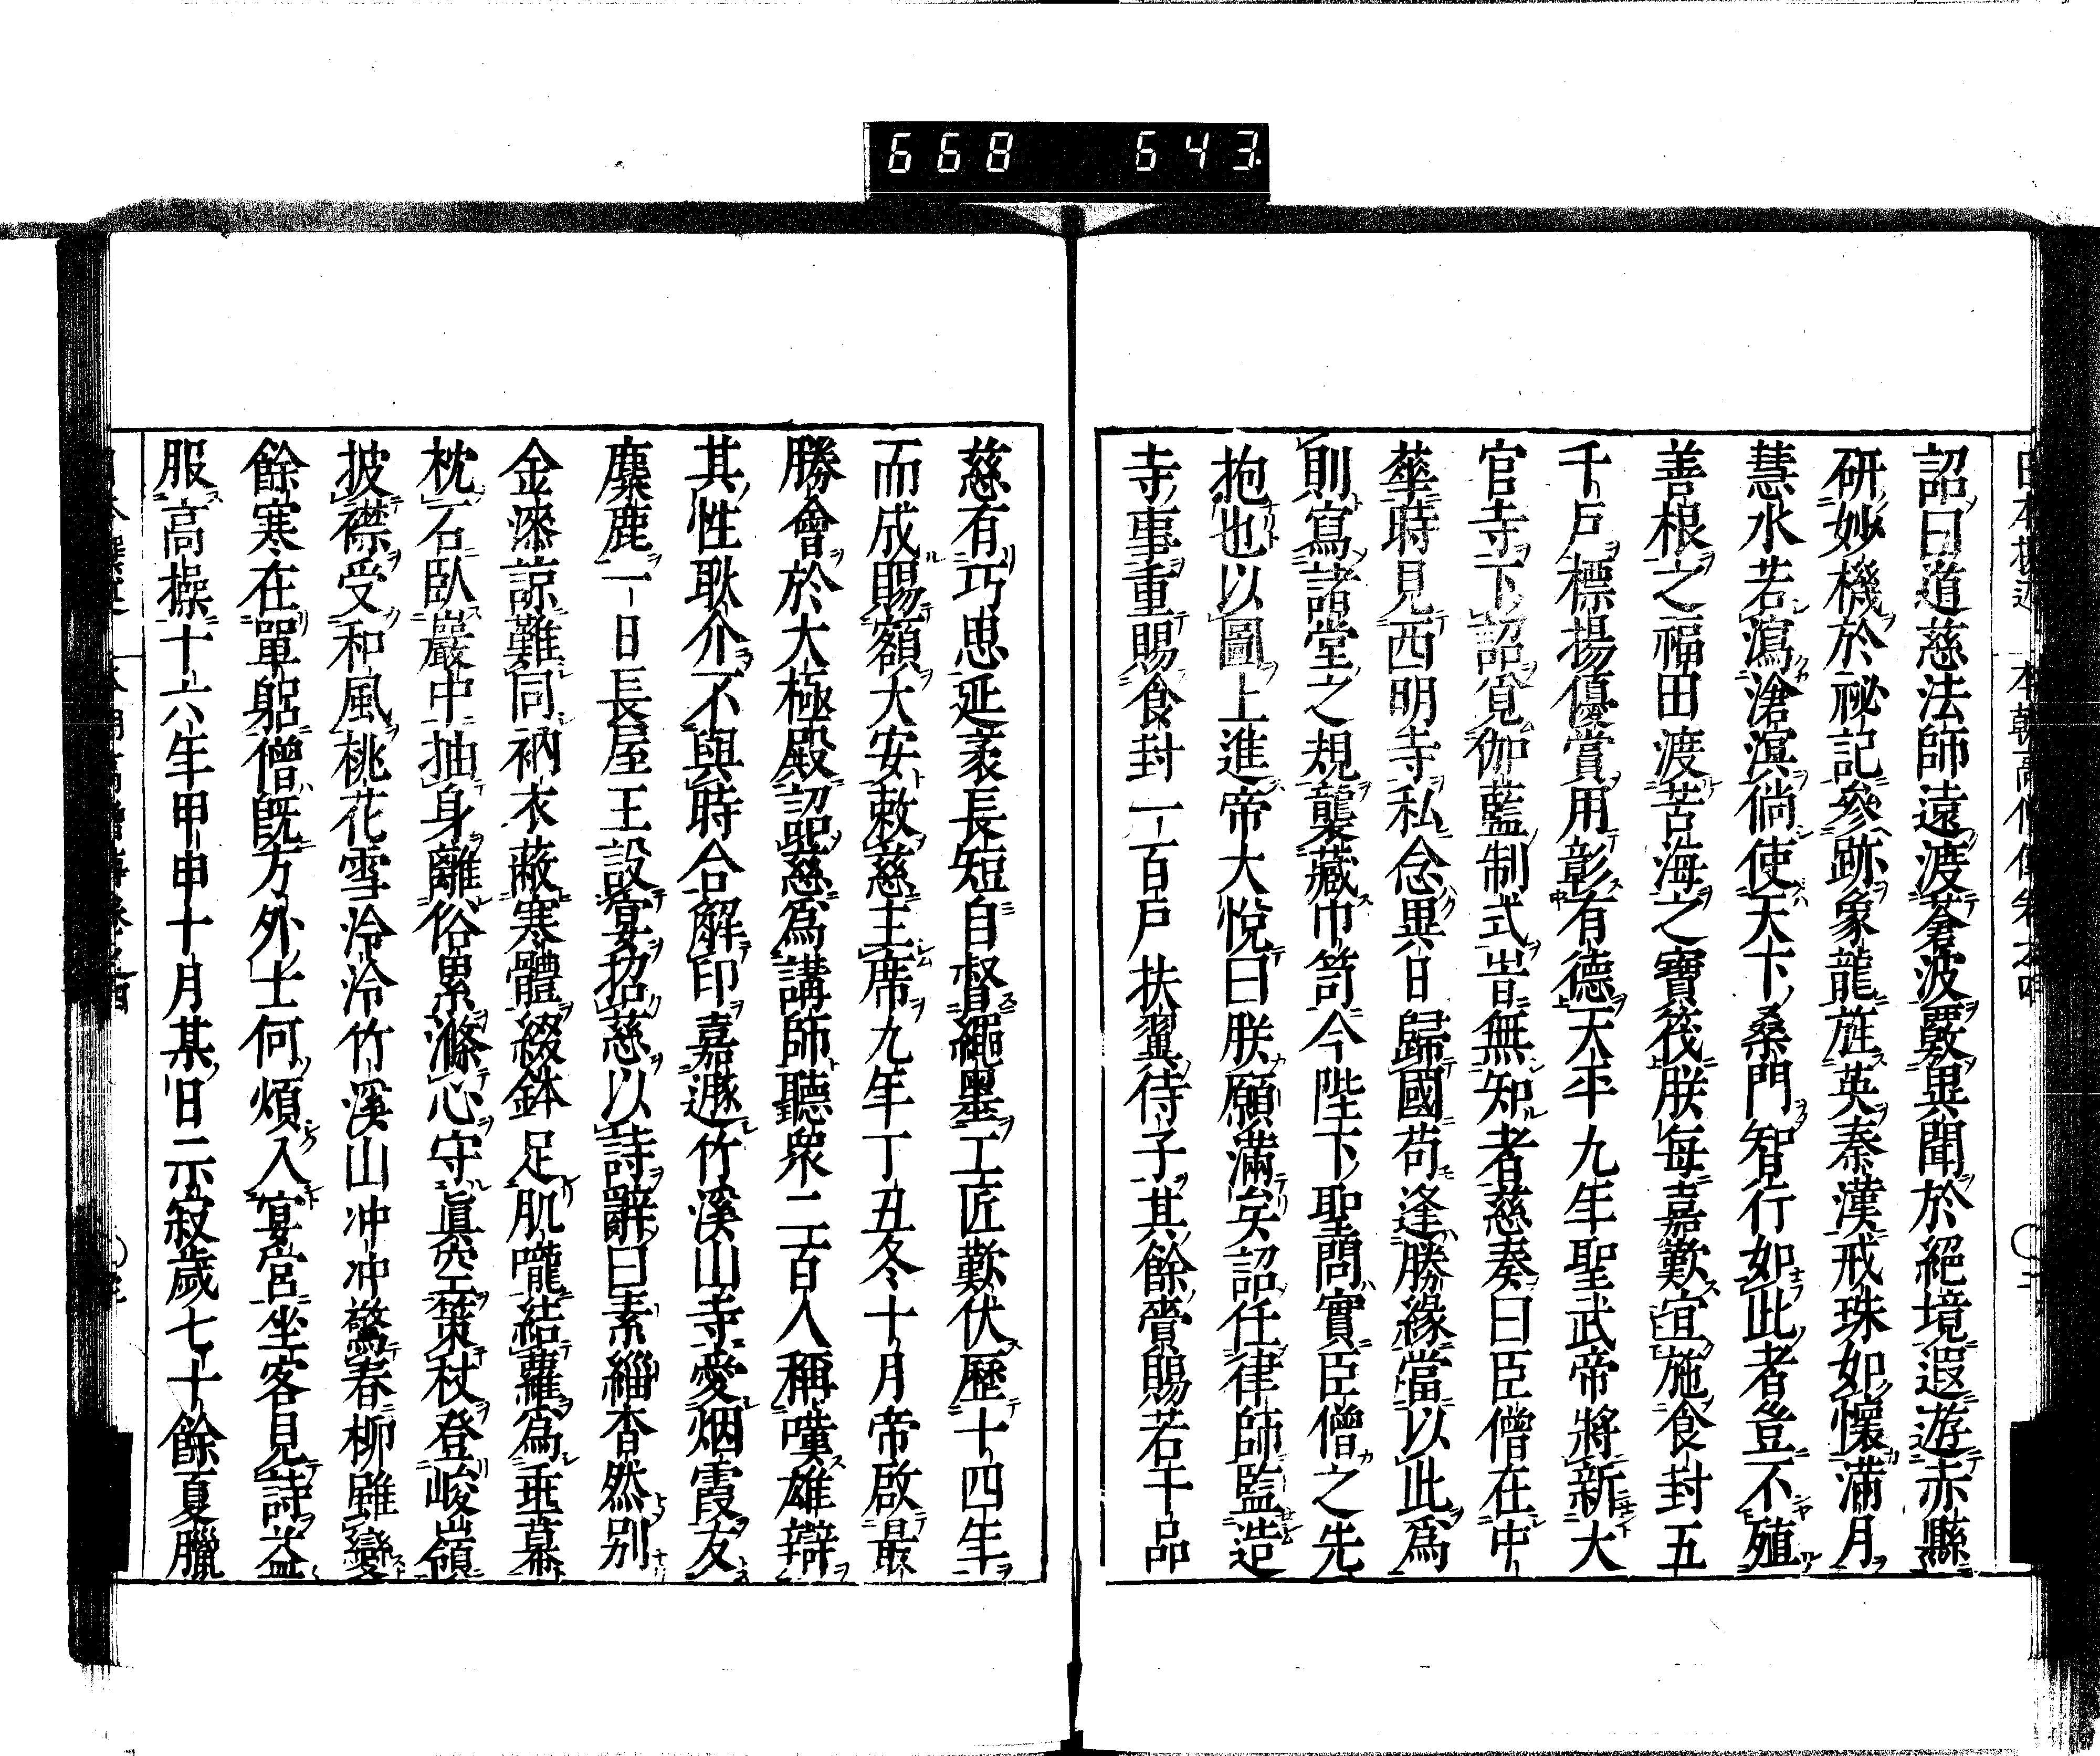 668 643
詔曰道慈法師遠渡蒼波覈異聞於絕境遐遊赤縣
研妙機於祕記參跡象龍旌英秦漢戒珠如懷滿月
慧水若瀉滄溟倘使天下桑門智行如此者豈不殖
善根之福田渡苦海之寶筏朕每嘉歎宜施食封五
千戶標揚優賞用彰有德天平九年聖武帝將新大
官寺下詔覓伽藍制式皆無知者慈奏曰臣僧在中
華時見西明寺私念異日歸國苟逢勝緣當以此爲
則寫諸堂之規襲藏巾笥今陛下聖問實臣僧之先
抱也以圖上進帝大悅曰朕願滿矣詔任律師監造
寺事重賜食封一百戶扶翼侍子其餘賞賜若干品
慈有巧思延袤長短自督繩墨工匠歎伏歷十四年
而成賜額大安敕慈主席九年丁丑冬十月帝啟最
勝會於大極殿詔慈爲講師聽衆二百人稱嘆雄辯
其性耿介不與時合解印嘉遯竹溪山寺愛烟霞友
麋鹿一日長屋王設宴招慈以詩辭曰素緇杳然别
金漆諒難同衲衣蔽寒體綴鉢足肌嚨結蘿爲垂幕
枕石臥巖中抽身離俗累滌心守眞空策杖登峻嶺
披襟受和風桃花雪泠泠竹溪山冲冲驚春柳雖變
餘寒在單躬僧既方外士何煩入宴宮坐客見詩益
服高操十六年甲申十月某日示寂歲七十餘夏臘